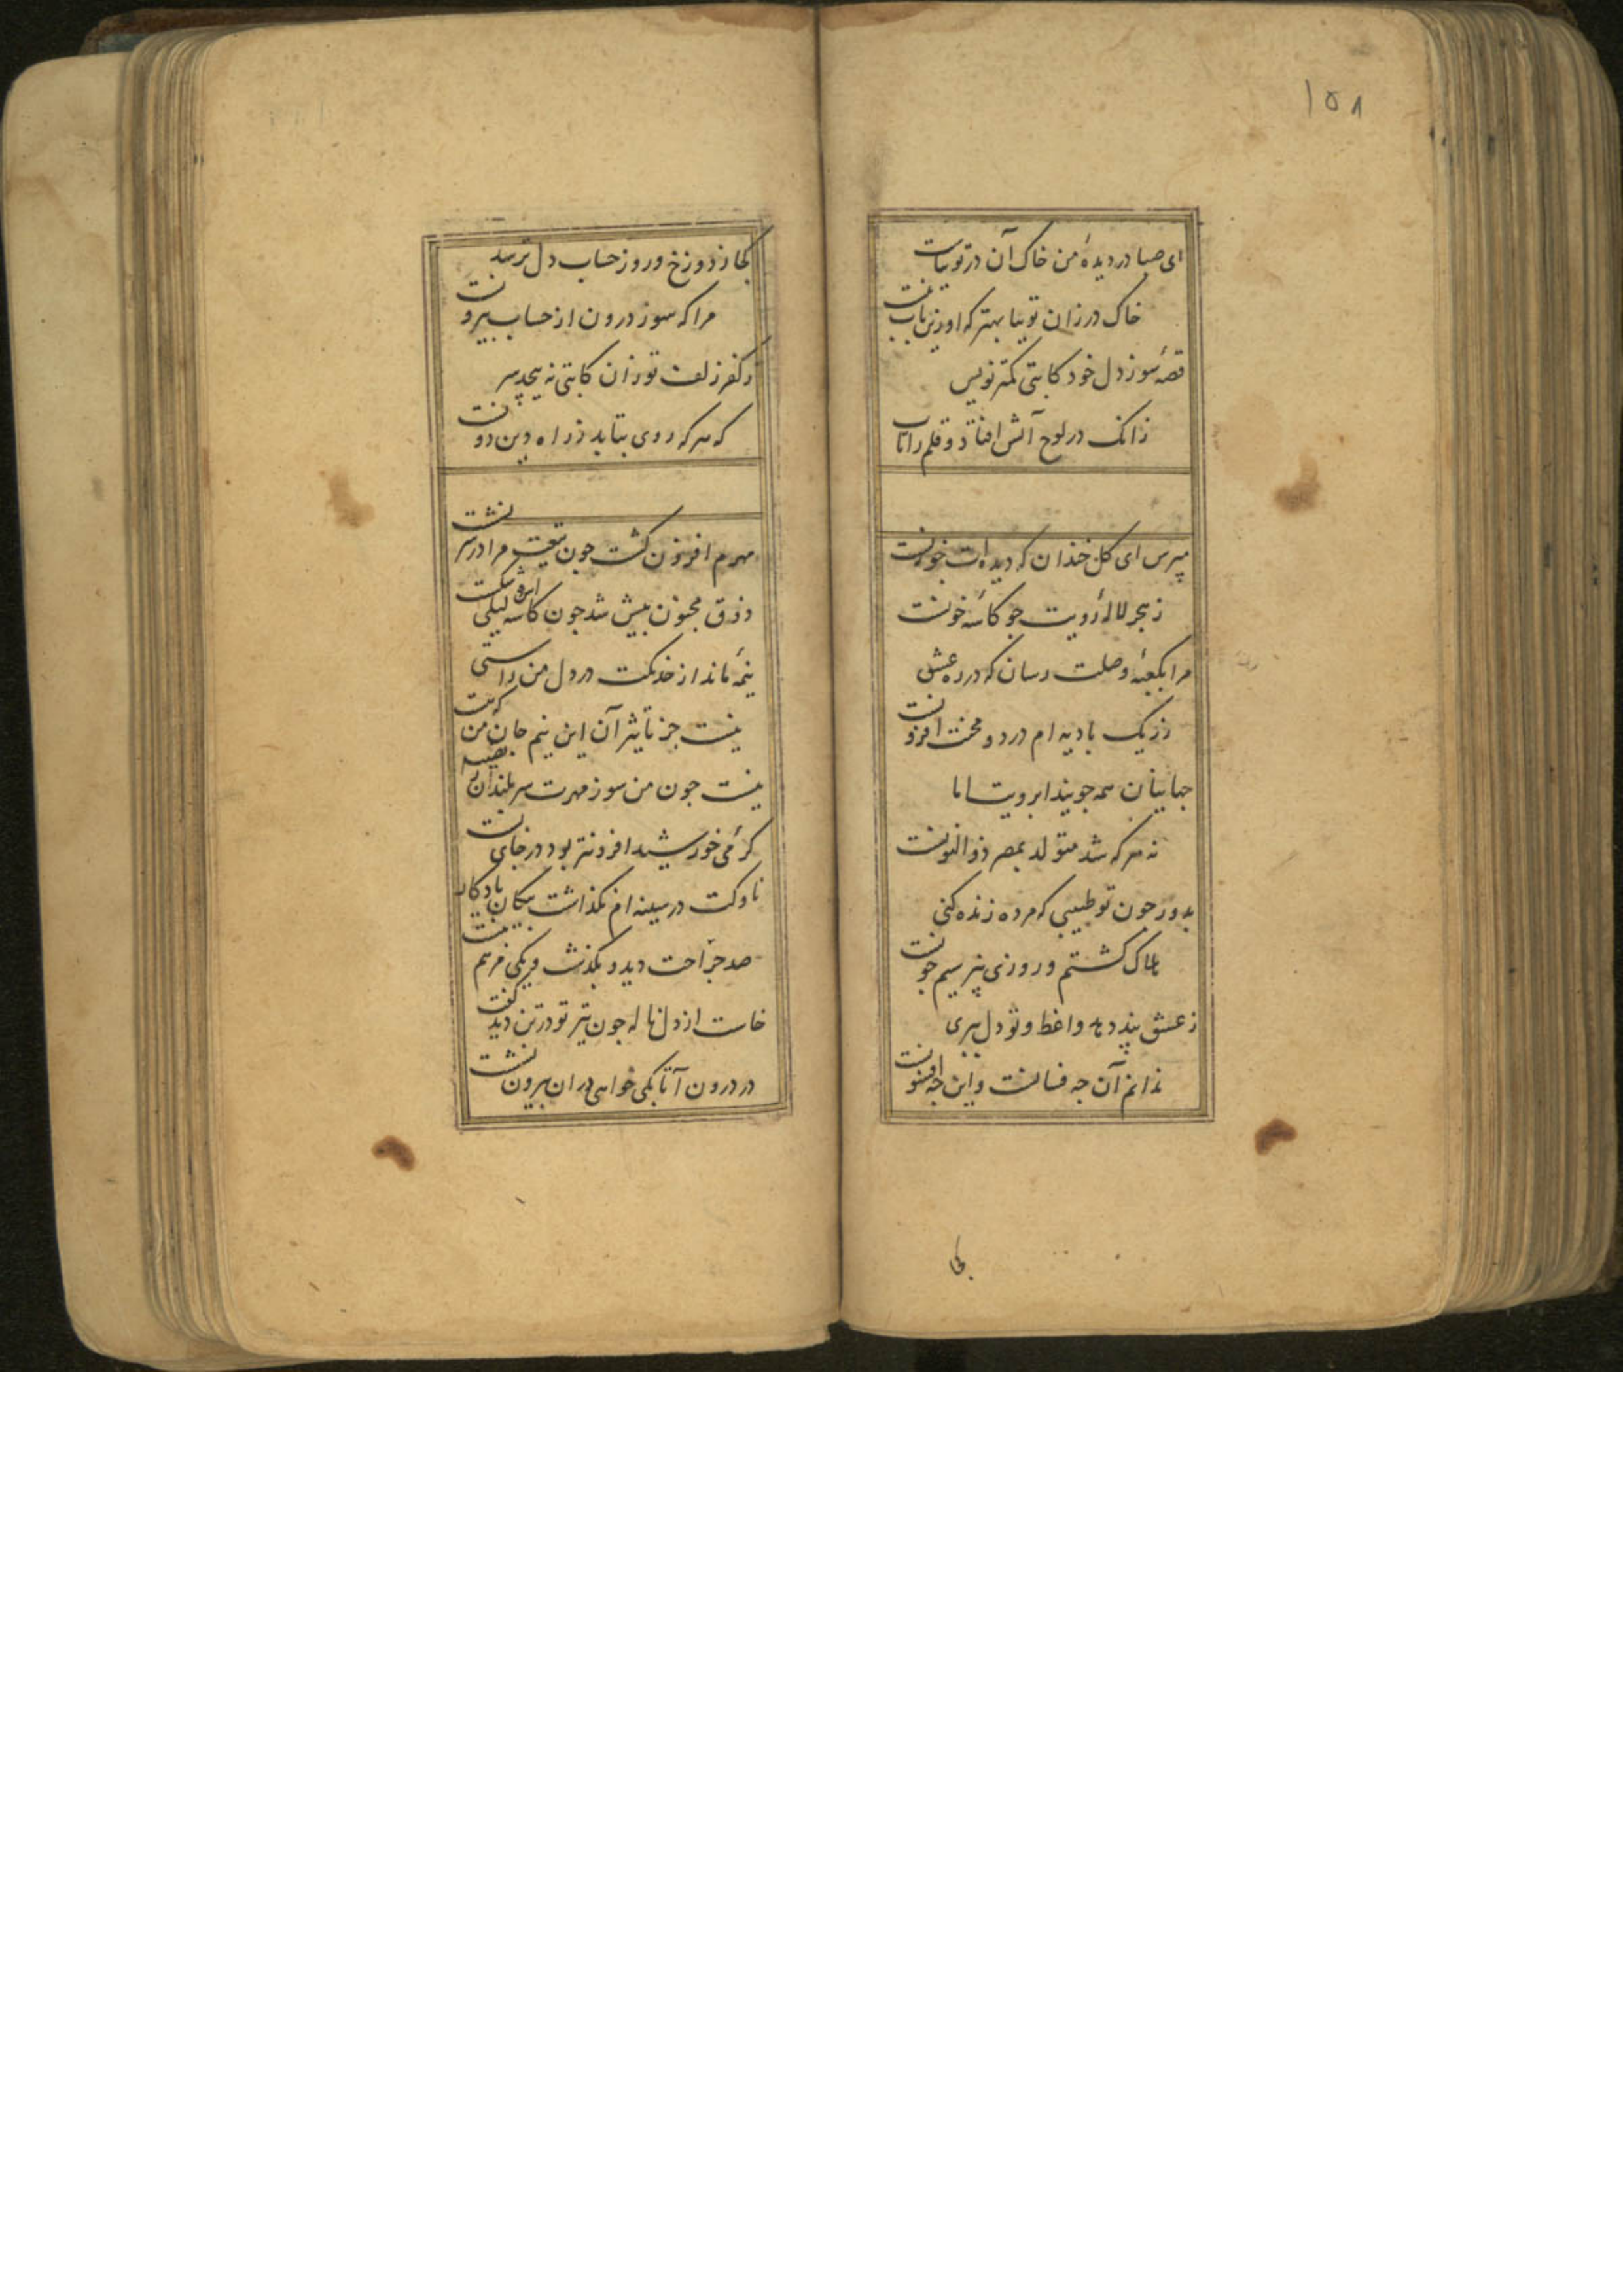 ۱۵۸
ای صبا در دیدهٔ من خاک آن در توتیاست
خاک در زان توتیا بهتر که او زین باب نیست
قصهٔ سوز دل خود کاتبی کمتر نویس
زانک در لوح آتش افتاد و قلم را تاب
مپرس ای کل خندان که دیده ات خونست
ز هجر لالهٔ رویت جو کاسهٔ خونست
مرا بکعبهٔ وصلت رسان که در ره عشق
ز ریک بادیه ام درد و محنت افزونست
جهانیان همه جویند ابرویت اما
نه هر که شد متولد بمصر ذوالنونست
بدور جون تو طبیبی که مرده زنده کنی
هلاک کشتم و روزی نپرسیم جونست
ز عشق پند دهد واعظ و تو دل ببری
ندانم آن جه فسانست و این جه افسونست
کجا
کجا ز دوزخ و روز حساب دل ترسد
مرا که سوز درون از حساب بیرونست
ز کفر زلف تو زان کاتبی نه پیچد سر
که هر که روی بتابد ز راه دین دونست
مهرم افزون کشت جون تیغت مرا در سر نشست
ذوق مجنون بیش شد جون کاسه لیلی شکست
نیمهٔ ماند از خدنکت در دل من راستی
نیست جز تاثیر آن این نیم جان من که هست
نیست جون من سوز مهرت سربلندان را نصیب
کرمی خورشید افزونتر بود در جای پست
ناوکت در سینه ام نکذاشت پیکان یادکار
صد جراحت دید و بکذشت و یکی مرهم نبست
خاست از دل ناله جون تیر تو در تن دید کفت
در درون آ تا بکی خواهی در ان بیرون نشست